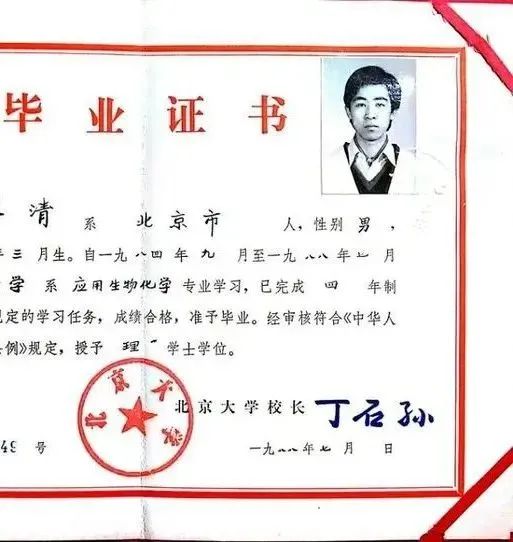 毕业证书
清 系 北京市 人，性别 男，
年 三 月生。自一九八四年 九 月至一九八八年 七 月
学 系 应用生物化学 专业学习，已完成 四 年制
规定的学习任务，成绩合格，准予毕业。经审核符合《中华人
条例》规定，授予 理 学士学位。
北京大学
北京大学校长 丁石孙
49 号
一九八八年七月 日